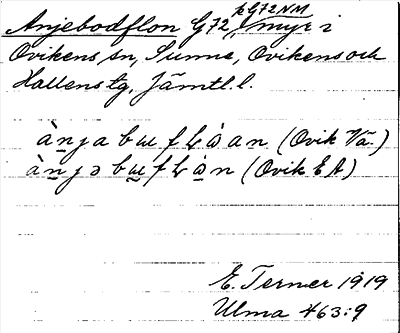 Anjebodflon G72, på G72NM myr i
Ovikens sn, Sunne, Ovikens och
Hallens tg, Jämtl. l.
ànjabɯfɫòan (Ovik Vä.)
ànjəbɯfɫòn (Ovik E A)
E. Terner 1919
Ulma 463:9